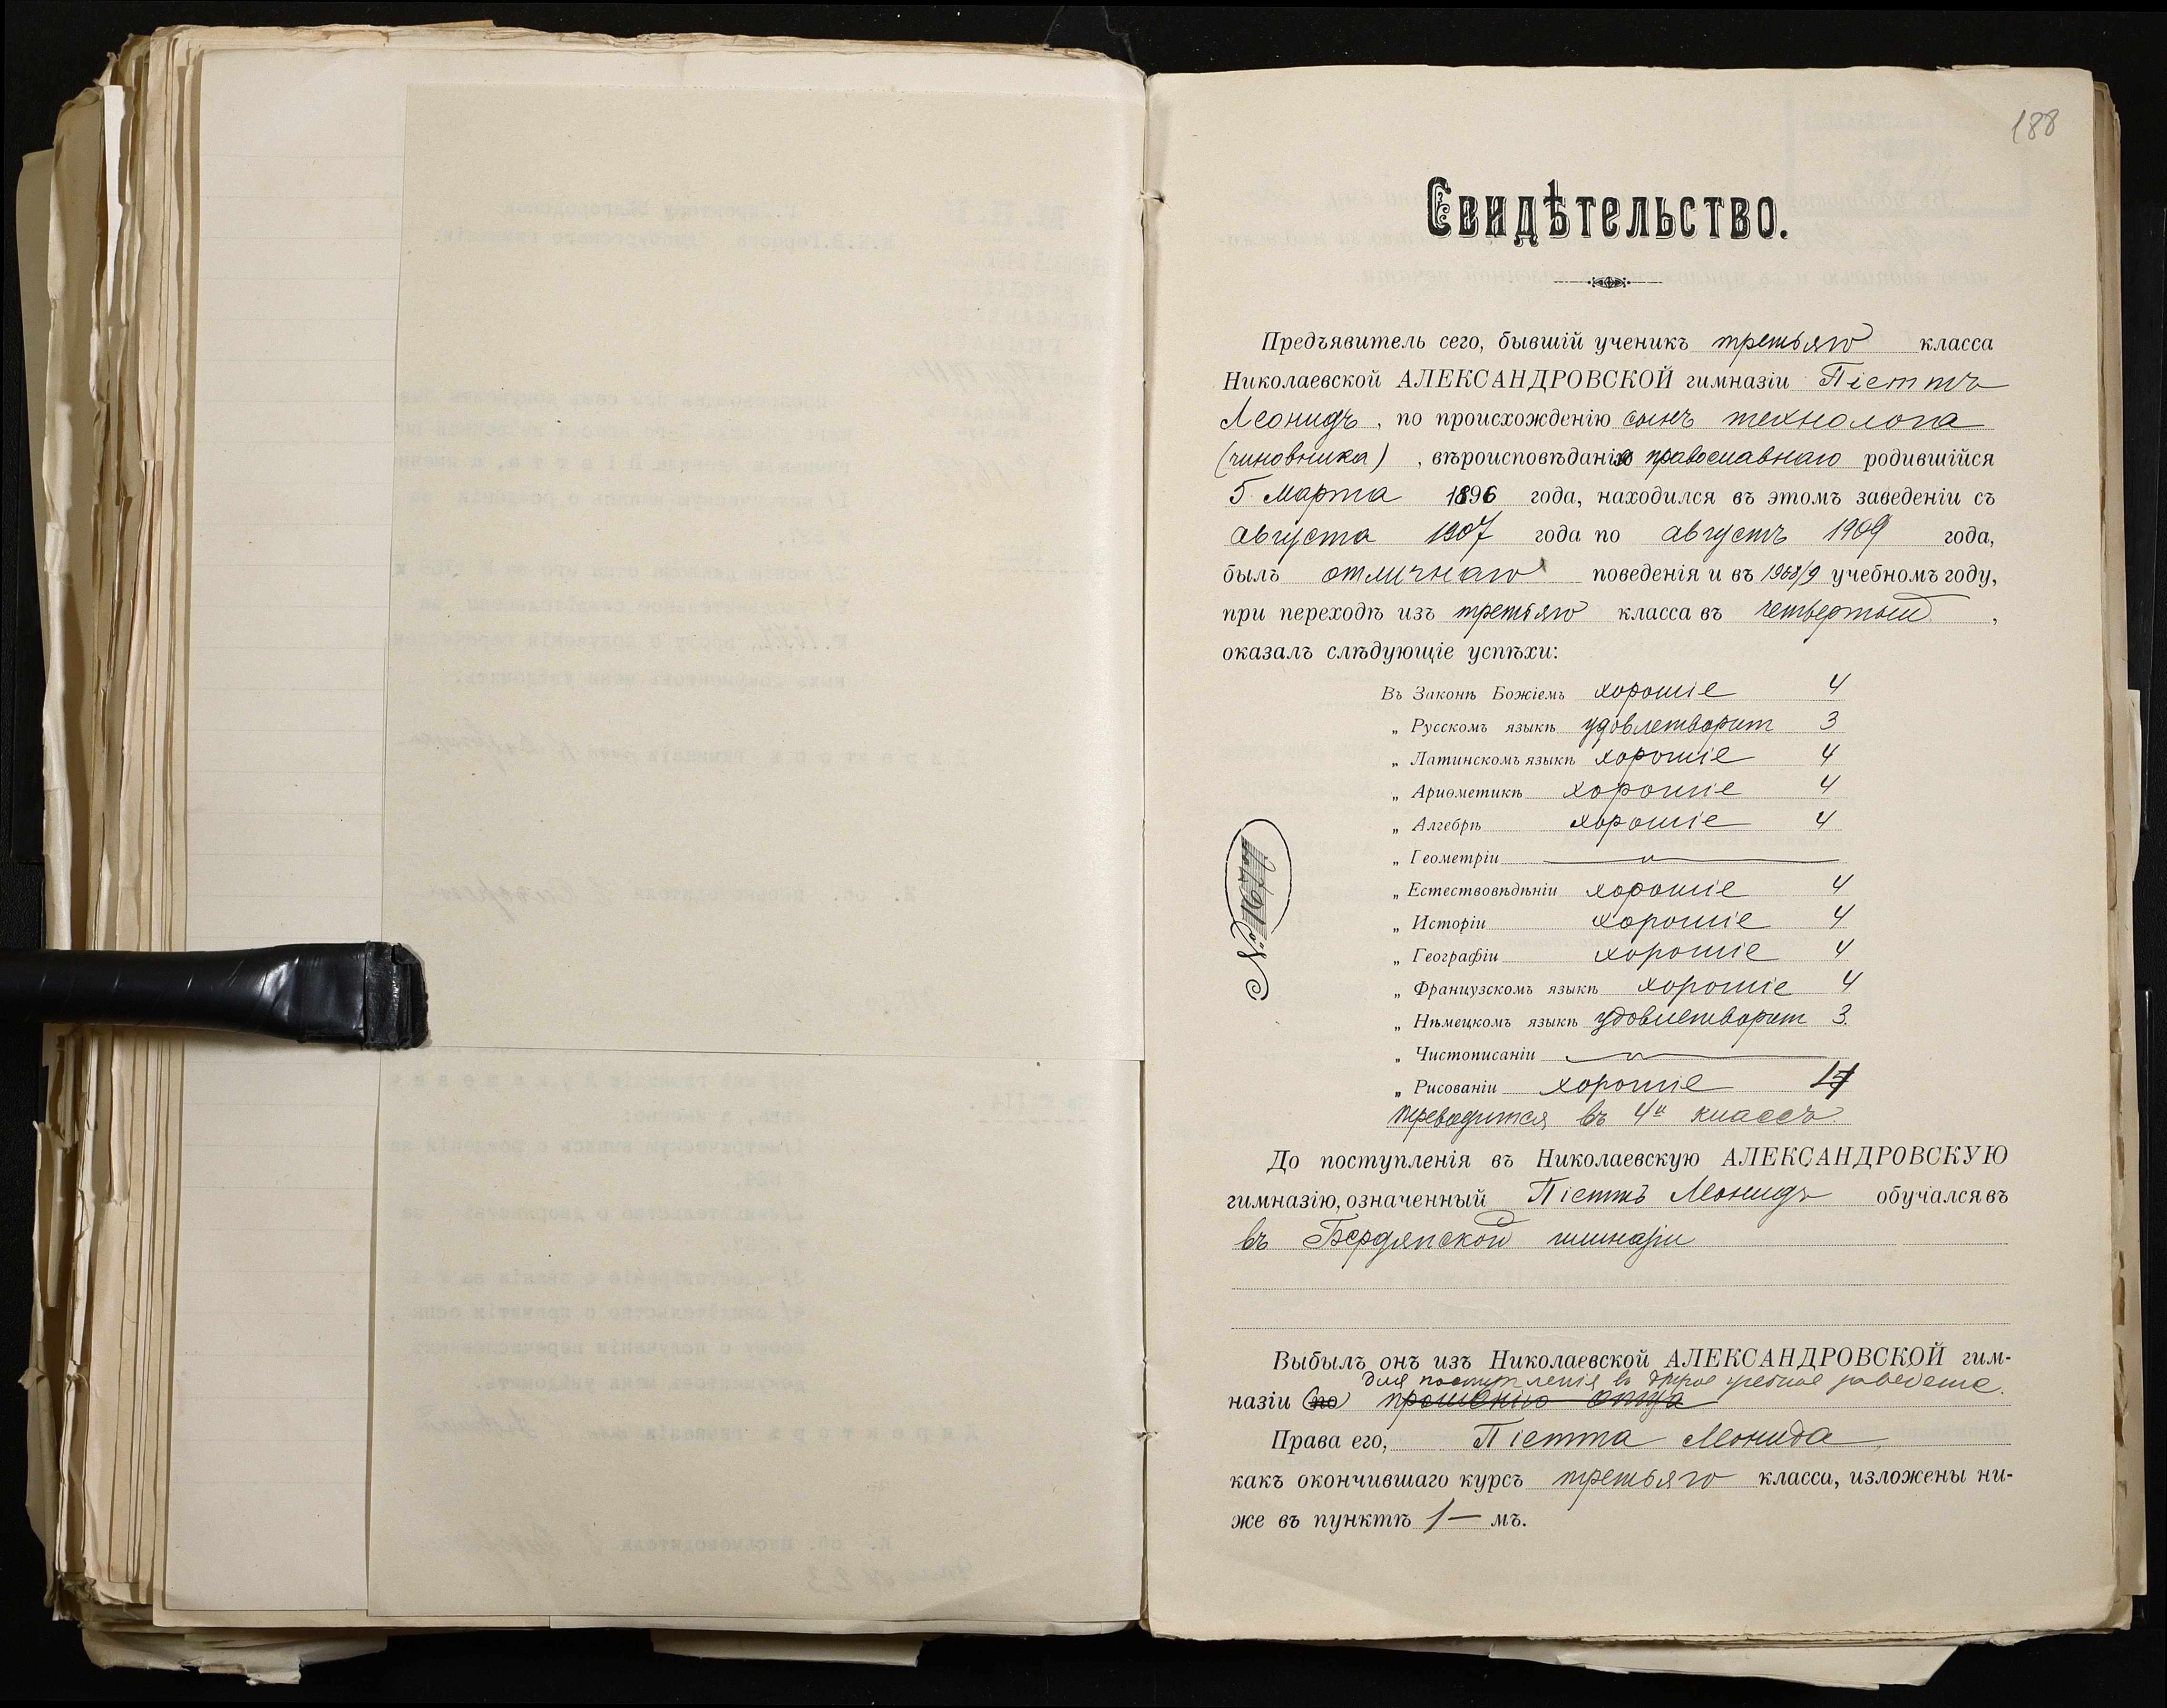 188
Свидѣтельство.
Предъявитель сего, бывшій ученикъ третьяго класса
Николаевской АЛЕКСАНДРОВСКОЙ гимназіи Піеттъ
Леонидъ, по происхожденію сынъ технолога
(чиновника), вѣроисповѣданія православнаго родившійся
5 Марта 1896 года, находился въ этомъ заведеніи съ
августа 1907 года по августъ 1909 года,
былъ отличнаго поведенія и въ 1908/9 учебномъ году,
при переходѣ изъ третьяго класса въ четвертый,
оказалъ слѣдующіе успѣхи:
Въ Законѣ Божіемъ хорошіе 4
„ Русскомъ языкѣ удовлетворит 3
„ Латинскомъ языкѣ хорошіе 4
„ Ариѳметикѣ хорошіе 4
„ Алгебрѣ хорошіе 4
„ Геометріи
„ Естествовѣдѣніи хорошіе 4
„ Исторіи хорошіе 4
„ Географіи хорошіе 4
„ Французскомъ языкѣ хорошіе 4
„ Нѣмецкомъ языкѣ удовлетворит 3.
„ Чистописаніи
„ Рисованіи хорошіе 4
переводится въ 4й классъ.
№
До поступленія въ Николаевскую АЛЕКСАНДРОВСКУЮ
гимназію, означенный Піеттъ Леонидъ обучался въ
въ Бердянской гимназіи
Выбылъ онъ изъ Николаевской АЛЕКСАНДРОВСКОЙ гим-
для поступленія въ другое учебное заведеніе.
назіи по прошенію отца
Права его, Піетта Леонида,
какъ окончившаго курсъ третьяго класса, изложены ни-
же въ пунктѣ 1 — мъ.